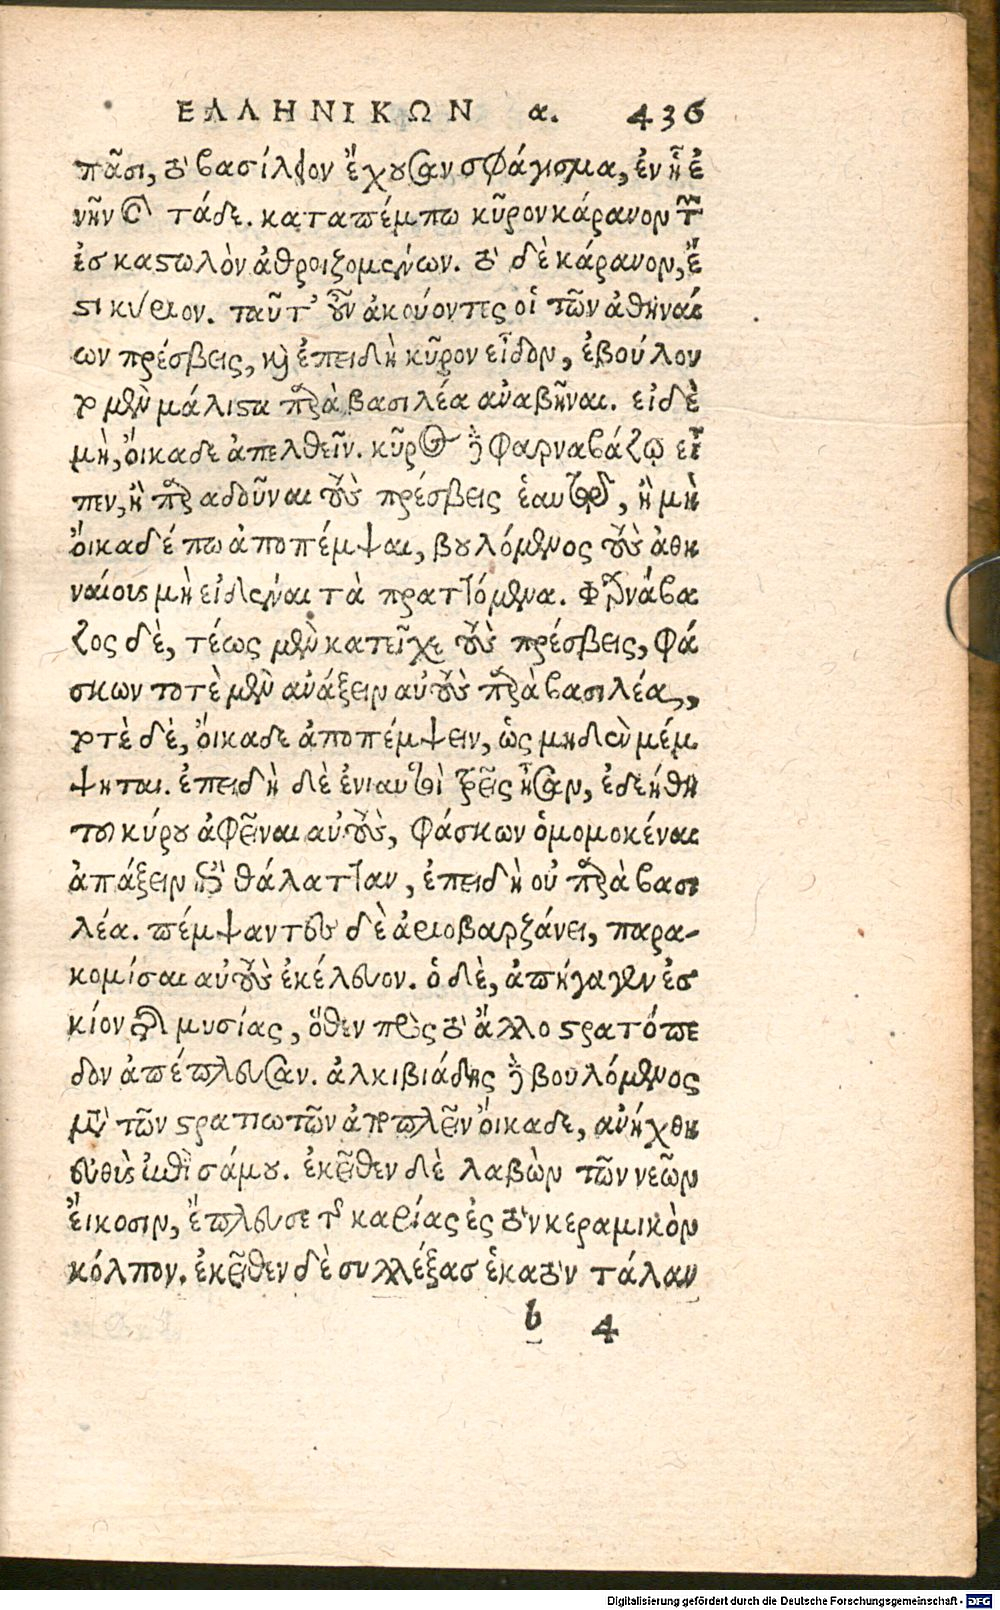 ΕΛΛΗΝΙΚΩΝ α. 436
πᾶσι, τὸ βασίλειον ἔχουσαν σφάγισμα, ἐν ᾗ ἐ
νῆν καὶ τάδε. καταπέμπω κῦρον κάρανον τῶν
ἐσ καστωλὸν ἀθροιζομένων. τὸ δὲ κάρανον, ἔ
στι κύριον. ταῦτ' οὖν ἀκούοντες οἱ τῶν ἀθηναί
ων πρέσβεις, καὶ ἐπειδὴ κῦρον εἶδον, ἐβούλον
το μὲν μάλιστα πρὸς βασιλέα ἀναβῆναι. εἰ δὲ
μὴ, ὄικαδε ἀπελθεῖν. κῦρος δὲ φαρναβάζῳ εἶ
πεν, ἢ παραδοῦναι τοὺς πρέσβεις ἑαυτῷ, ἢ μὴ
ὄικαδέ πω ἀποπέμψαι, βουλόμενος τοὺς ἀθη
ναίους μὴ εἰδέναι τὰ πραττόμενα. Φαρνάβα
ζος δὲ, τέως μὲν κατεῖχε τοὺς πρέσβεις, φά
σκων τοτὲ μὲν ἀνάξειν αὐτοὺς παρὰ βασιλέα,
τοτὲ δὲ, ὄικαδε ἀποπέμψειν, ὡς μηδὲν μέμ
ψηται. ἐπειδὴ δὲ ἐνιαυτοὶ τρεῖς ἦσαν, ἐδεήθη
του κύρου ἀφεῖναι αὐτοὺς, φάσκων ὁμομοκέναι
ἀπάξειν ἐπὶ θάλατταν, ἐπειδὴ οὐ παρὰ βασι
λέα. πέμψαντες δὲ ἀριοβαρζάνει, παρα-
κομίσαι αὐτοὺς ἐκέλευον. ὁ δὲ, ἀπήγαγεν ἐσ
κίον τῆς μυσίας, ὅθεν πρὸς τὸ ἄλλο στρατόπε
δον ἀπέπλευσαν. ἀλκιβιάδης δὲ βουλόμενος
μετὰ τῶν στρατιωτῶν ἀποπλεῖν ὄικαδε, ἀνήχθη
εὐθὺς ἐπὶ σάμου. ἐκεῖθεν δὲ λαβὼν τῶν νεῶν
ἔικοσιν, ἔπλευσε τῆς καρίας ἐς τὸν κεραμικὸν
κόλπον. ἐκεῖθεν δὲ συλλέξας ἑκατὸν τάλαν
b 4
Digitalisierung gefördert durch die Deutsche Forschungsgemeinschaft - DFG